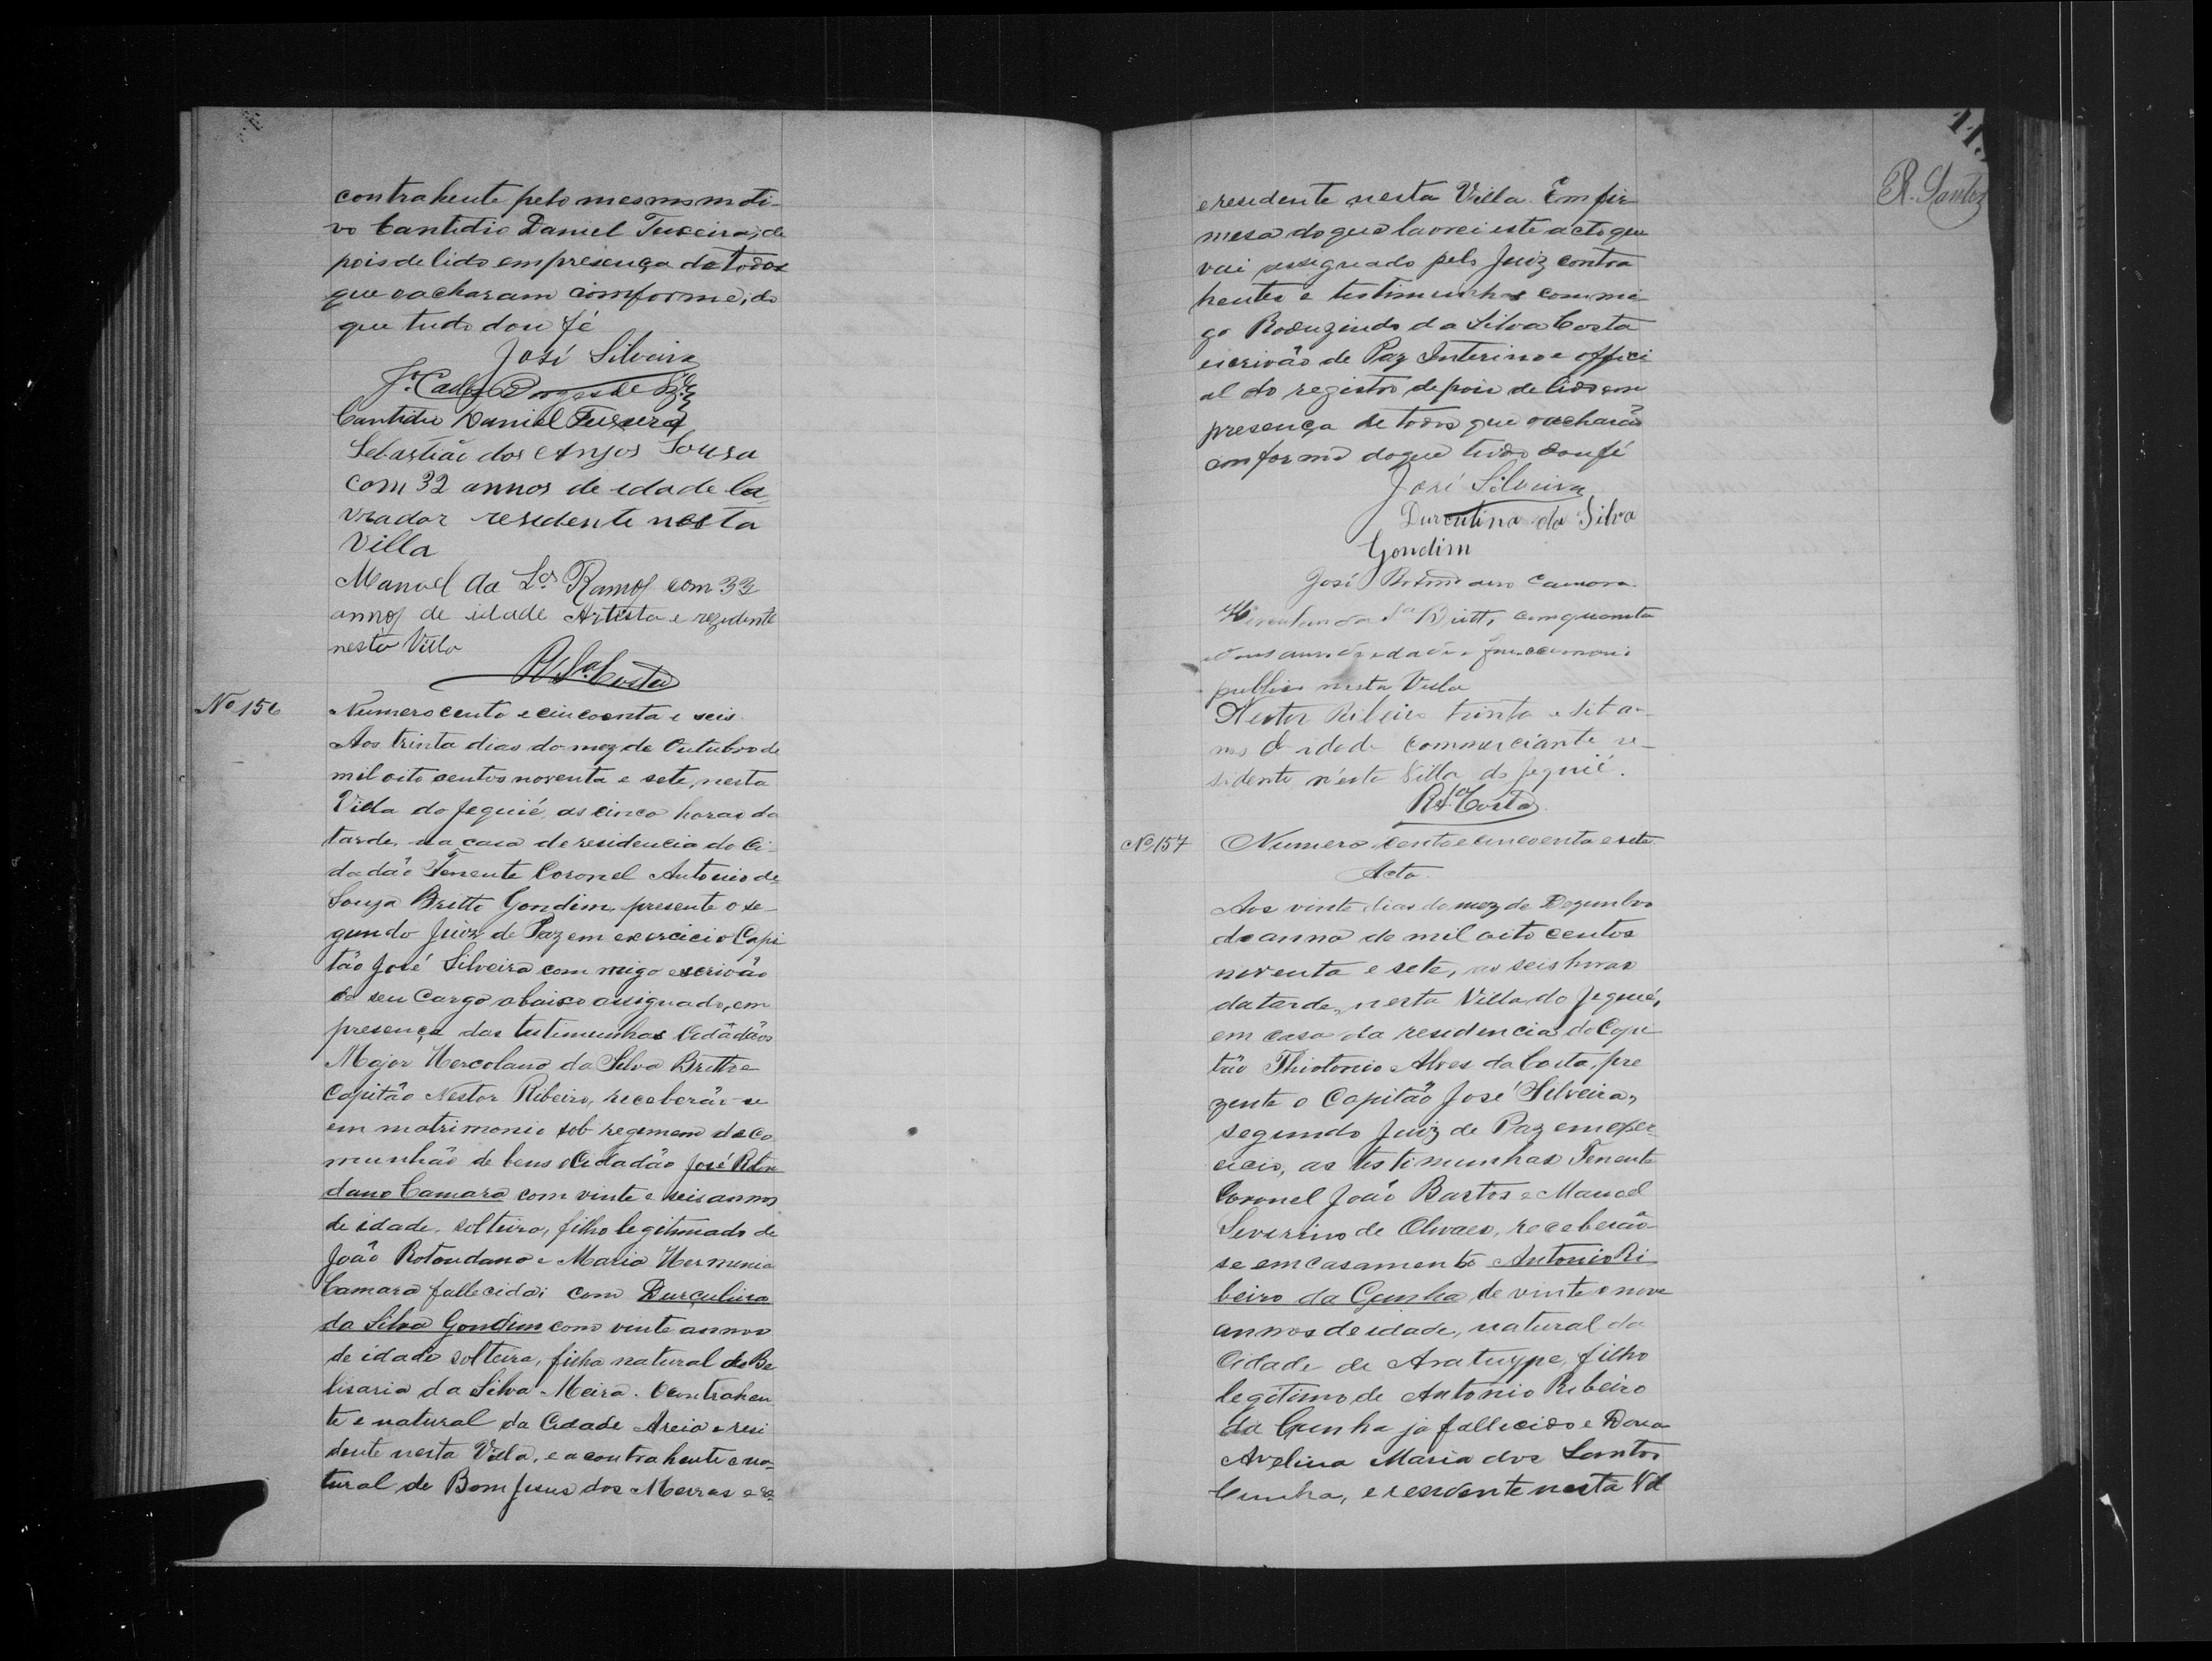 contrahente pelo mesmo moti-
vo Cantidio Daniel Teixeira, de
pois de lido em presença de todos
que oacharam comforme, do
que tudo dou fé
José Silveira
Cantidio Daniel Teixeira
Sebastião dos Anjos Sousa
com 32 annos de idade la
vrador residente nesta
Villa
Manoel da Ramos com 33
annos de idade Artista e rezidente
nesta Villa
R. Sa. Costa
No 156
Numero cento e cincoenta e seis.
Aos trinta dias do mez de Outubro de
mil oito centos noventa e sete, nesta
Villa do Jequié, as cinco horas da
tarde, na casa de residencia do Ci-
dadão Tenente Coronel Antonio de
Souza Britto Gondim, presente o se-
gundo Juiz de Paz em exercicio Capi
tão José Silveira com migo escrivão
de seu Cargo abaixo assignado, em
presença das testimunhas Cidadãos
Major Hercolano da Silva Britto e
Capitão Nestor Ribeiro, receberão-se
em matrimonio sob regemem da Co
munhão de bens o Cidadão José Roton
dano Camara com vinte e seis annos
de idade, solteiro, filho legitimado de
João Rotondano e Maria Herminia
Camara fallecida; com Durçulina
da Silva Gondim com vinte annos
de idade solteira, filha natural de Be
lisaria da Silva Meira. O contrahen
te e natural da Cidade Areia e resi
dente nesta Villa, e a contrahente e na-
tural de Bom Jesus dos Meiras e re-
11.
R. Santos
e residente nesta Villa. Em fir
mesa do que lavrei este acto que
vai assignado pelo Juiz contra
hentes e testimunhas commi
go Roduzindo da Silva Costa
escrivão de Paz Interino e offici
al do registro depois de lido em
presença de todos que oacharão
conforme do que tudo dou fé
José Silveira
Durculina da Silva
Gondim
José Rotondano Camara
Herculano da Sa. Britto, cinquenta
publico nesta Villa
Nestor Ribeiro trinta e set an-
nos de idade commerciante re-
sidente n'esta Villa de Jequié.
R. Sa. Costa
No 157
Numero cento e cincoenta e sete.
Acto.
Aos vinte dias do mez de Dezembro
do anno de mil oito centos
noventa e sete, as seis horas
da tarde, nesta Villa do Jequié,
em casa da residencia do Capi
tão Thiotonio Alves da Costa, pre
zente o Capitão José Silveira,
segundo Juiz de Paz em exer
cicio, as testimunhas Tenente
Coronel João Bastos e Manoel
Severino de Olivaes, receberão
se em casamento Antonio Ri
beiro da Cunha de vinte e nove
annos de idade, natural da
Cidade de Aratuype, filho
legitimo de Antonio Ribeiro
da Cunha ja fallecido e Dona
Avelina Maria dos Santos
Cunha, e residente nesta Vil